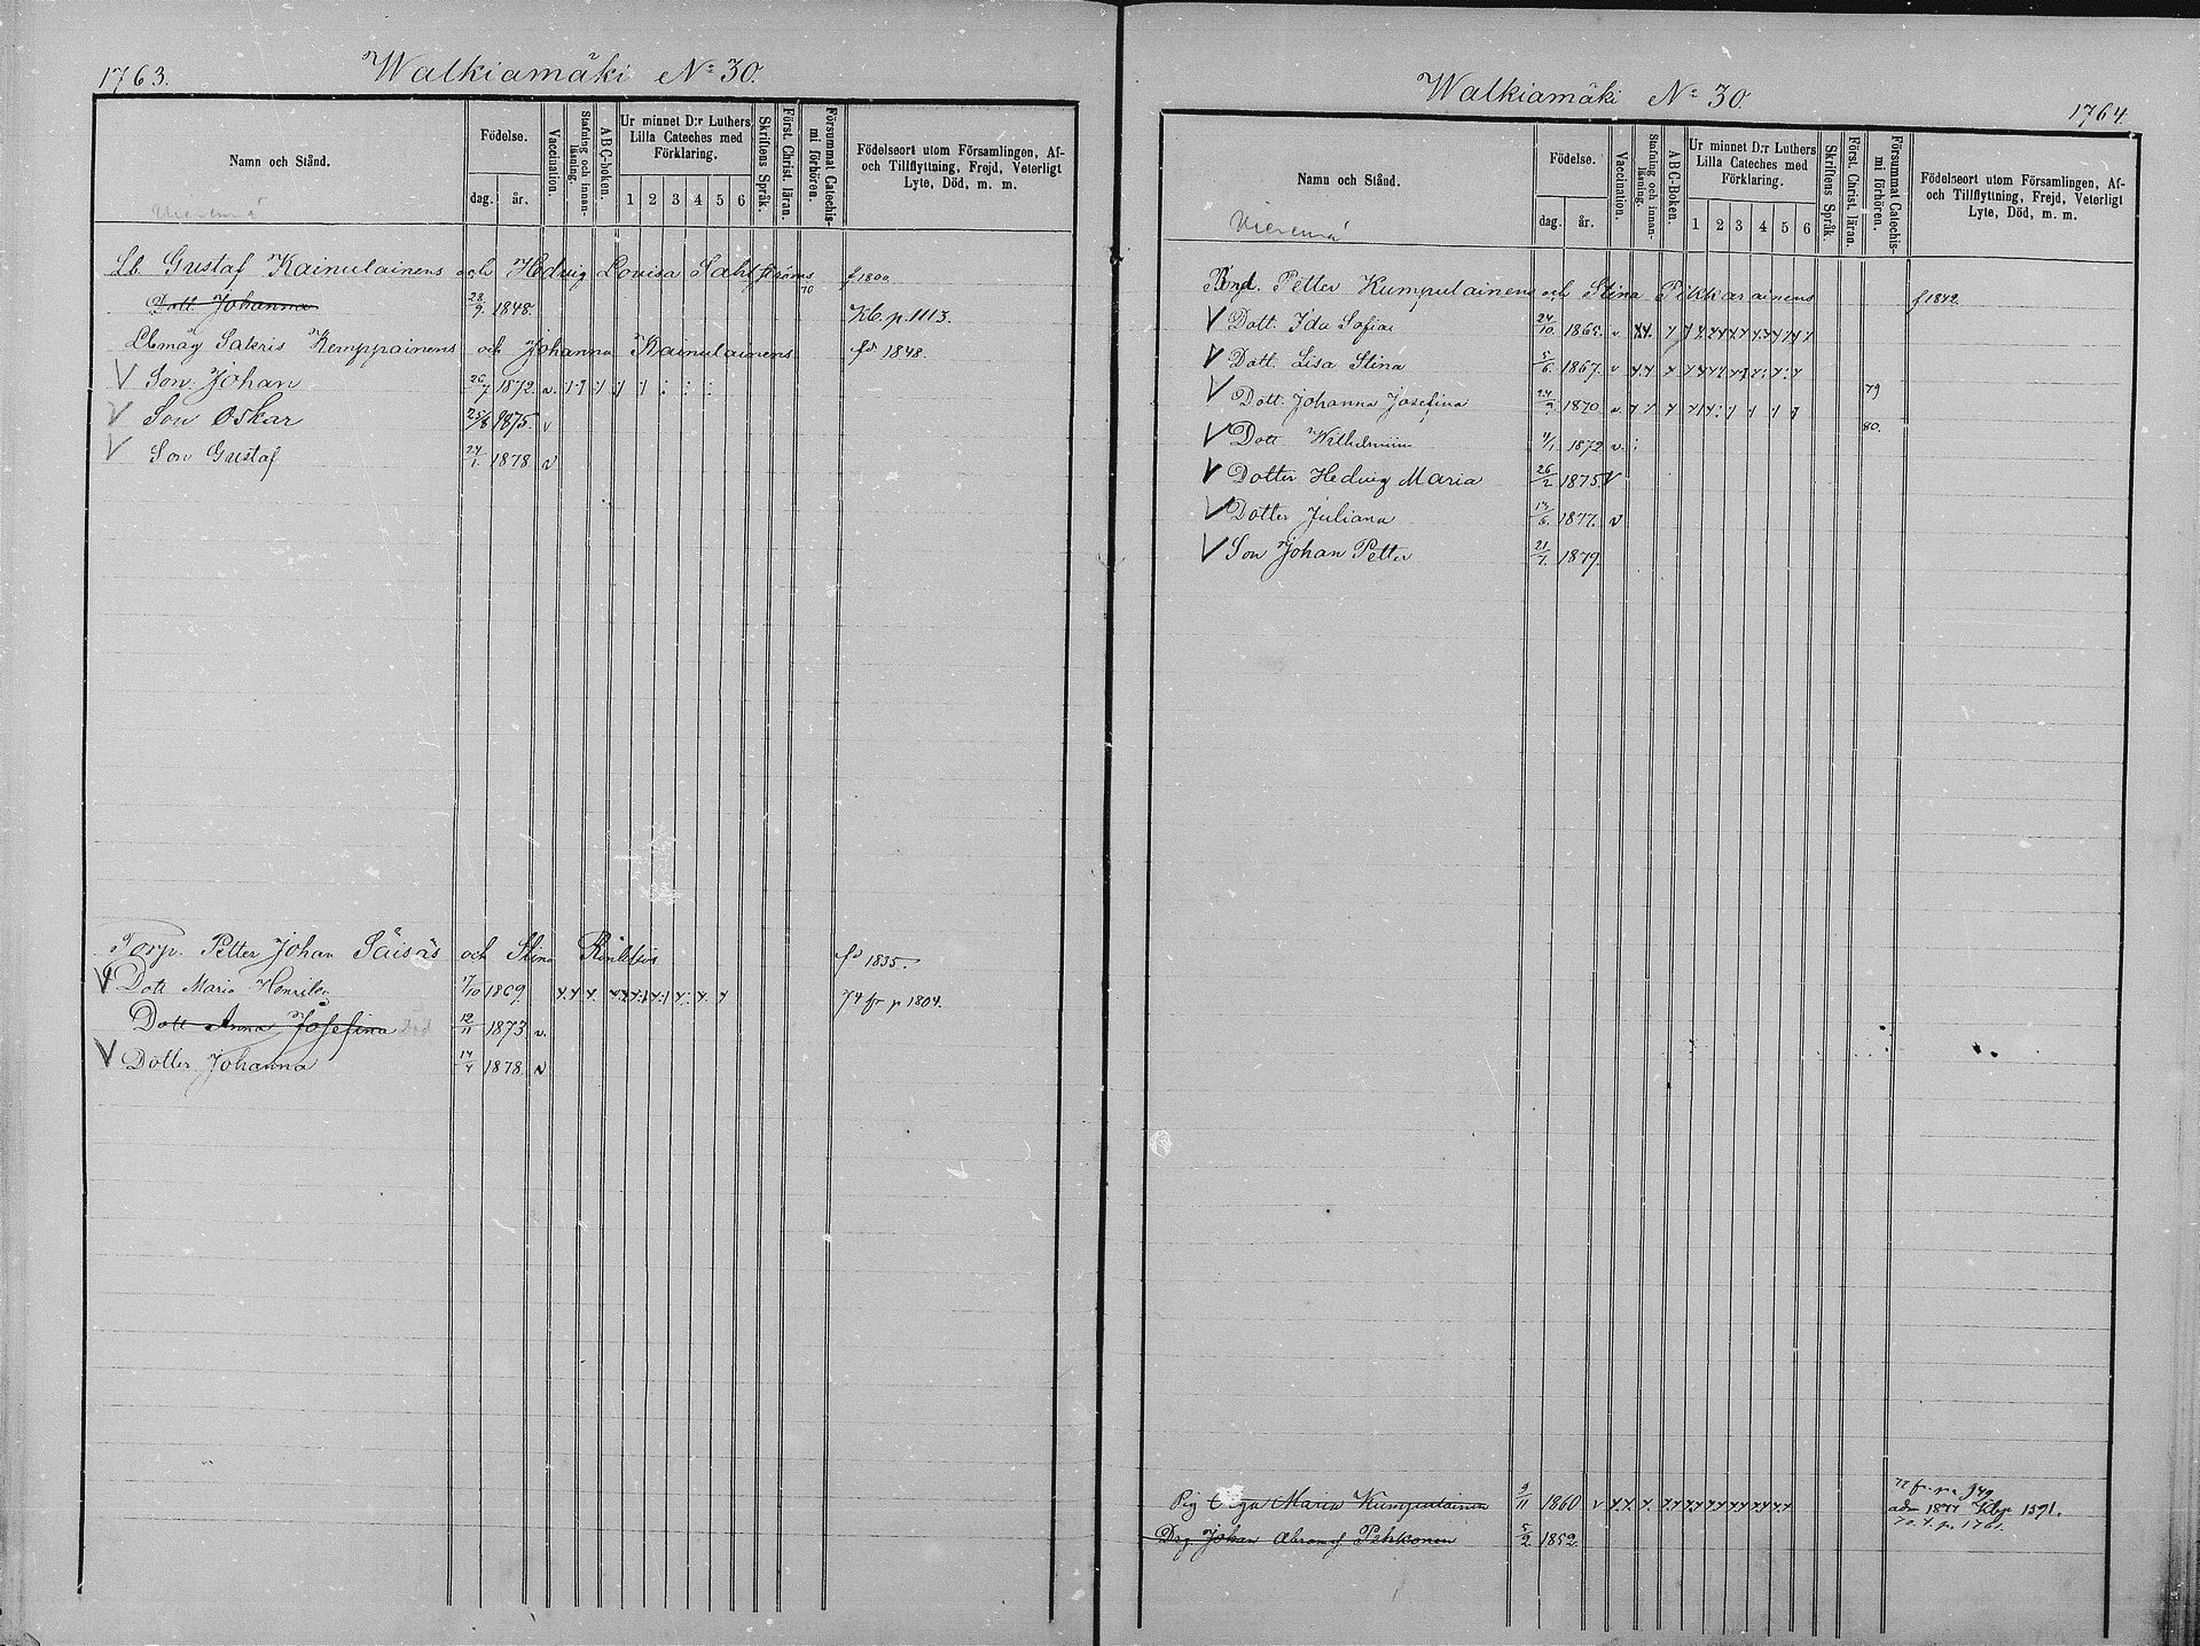 1763.
Walkiamäki No 30.
Namn och Stånd.
Födelse.
dag. år.
Vaccination.
Stafning och innanläsning.
ABC-boken.
Ur minnet D:r Luthers Lilla Cateches med Förklaring.
1 2 3 4 5 6
Skriftens Språk.
Först. Christ. läran.
Försummat Catechismi förhören.
Födelseort utom Församlingen, Af- och Tillflyttning, Frejd, Veterligt Lyte, Död, m. m.
Nieremä
Lb. Gustaf Kainulainens och Hedvig Lovisa Sahlströms 70 f 1800
Dott. Johanna 28/9. 1848. Kb. p. 1113.
Lbmåg Sakris Kemppainens och Johanna Kainulainens fd 1848.
V Son: Johan 26/7 1872. v.
V Son Oskar 25/8 1875. v
V Son Gustaf 24/1. 1878 v
Torp. Petter Johan Säisäs och Stina fd 1835.
V Dott Maria Henrika 17/10 1869. x.x x. 74 fr p 1804.
Dott Anna Josefina Död 12/11 1873 v.
V Dotter Johanna 14/4 1878. v
Walkiamäki No 30.
1764.
Namn och Stånd.
Födelse.
dag. år.
Vaccination.
Stafning och innanläsning.
ABC-Boken.
Ur minnet D:r Luthers Lilla Cateches med Förklaring.
1 2 3 4 5 6
Skriftens Språk.
Först. Christ. läran.
Försummat Catechismi förhören.
Födelseort utom Församlingen, Af- och Tillflyttning, Frejd, Veterligt Lyte, Död, m. m.
Nieremä
Bond. Petter Kumpulainens och Stina Pikkarainens f 1842.
V Dott. Ida Sofia 24/10. 1865. v
V Dott. Lisa Stina 5/6. 1867. v
V Dott. Johanna Josefina 1870 v. 79
V Dott Wilhelmiina 11/1 1872 v. 80.
V Dotter Hedvig Maria 26/2 1875. V
V Dotter Juliana 13/6. 1877. v
V Son Johan Petter 21/7. 1879.
Pig Olga Maria Kumpulainen 9/11 1860 v 949
adm 1877 Kbp 1591.
p. 1761.
Drg. Johan Abramsf Pehkonen 5/2 1852.